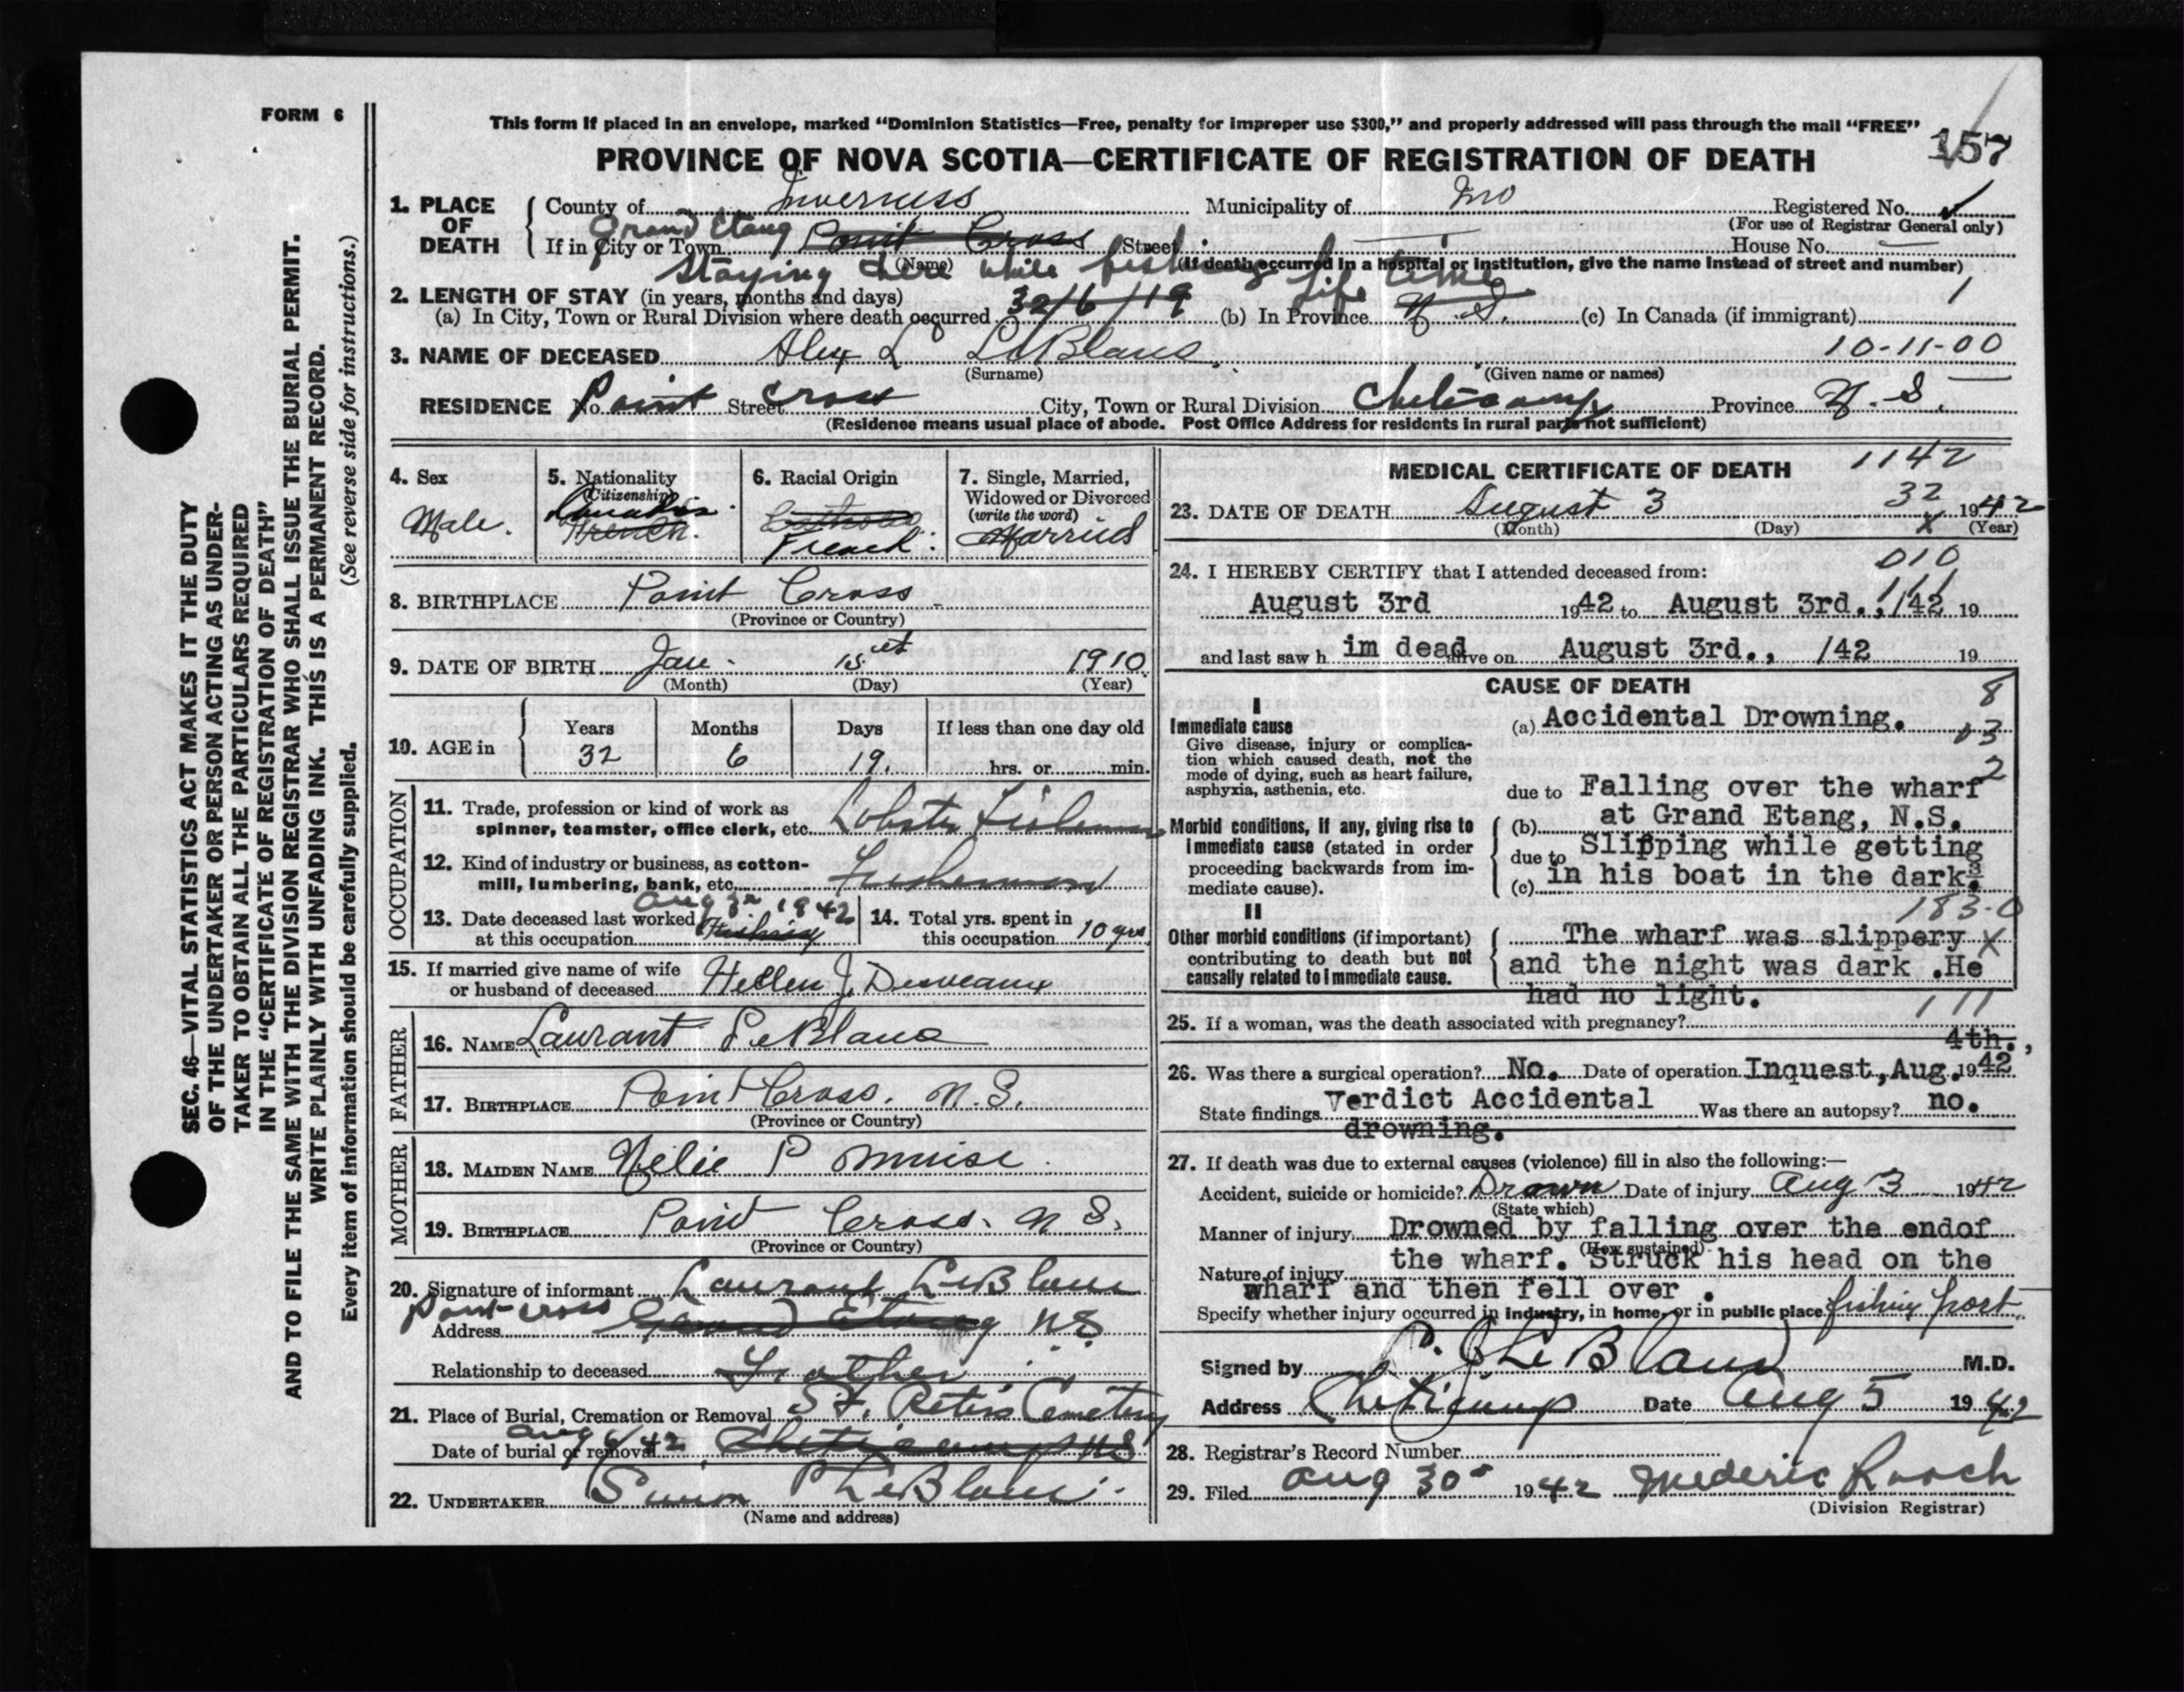 FORM 6
This form if placed in an envelope, marked “Dominion Statistics—Free, penalty for improper use $300,” and properly addressed will pass through the mail “FREE”
157
PROVINCE OF NOVA SCOTIA—CERTIFICATE OF REGISTRATION OF DEATH
1. PLACE OF DEATH
County of Inverness Municipality of Inv Registered No.
(For use of Registrar General only)
If in City or Town Grand Etang Point Cross Street House No.
(Name) (If death occurred in a hospital or institution, give the name instead of street and number)
Staying here while fishing
2. LENGTH OF STAY (in years, months and days) Life time 1
(a) In City, Town or Rural Division where death occurred 32/6/19 (b) In Province N.S. (c) In Canada (if immigrant)
3. NAME OF DECEASED Alex L LeBlanc 10-11-00
(Surname) (Given name or names)
RESIDENCE No. Point Street Cross City, Town or Rural Division Cheticamp Province N.S.
(Residence means usual place of abode. Post Office Address for residents in rural parts not sufficient)
4. Sex
Male.
5. Nationality
(Citizenship)
Canadian.
French.
6. Racial Origin
French.
7. Single, Married, Widowed or Divorced
(write the word)
Married
8. BIRTHPLACE Point Cross
(Province or Country)
9. DATE OF BIRTH Jan. 15 1910
(Month) (Day) (Year)
10. AGE in
Years Months Days If less than one day old
32 6 19. hrs. or min.
OCCUPATION
11. Trade, profession or kind of work as
spinner, teamster, office clerk, etc. Lobster Fisherman
12. Kind of industry or business, as cotton-
mill, lumbering, bank, etc. Fisherman
13. Date deceased last worked Aug 3rd 1942
at this occupation Fishing
14. Total yrs. spent in
this occupation 10 yrs
15. If married give name of wife
or husband of deceased Hellen J. Desveaux
FATHER
16. NAME Laurant LeBlanc
17. BIRTHPLACE Point Cross. N.S.
(Province or Country)
MOTHER
18. MAIDEN NAME Nelie P Muise
19. BIRTHPLACE Point Cross. N S.
(Province or Country)
20. Signature of informant Laurant LeBlanc
Point-cross
Address Grand Etang N.S.
Relationship to deceased Father
21. Place of Burial, Cremation or Removal St. Peters Cemetery
Date of burial or removal Aug 6/42 Cheticamp N.S
22. UNDERTAKER Simon P LeBlanc
(Name and address)
MEDICAL CERTIFICATE OF DEATH 1142
32
23. DATE OF DEATH August 3 1942
(Month) (Day) X (Year)
24. I HEREBY CERTIFY that I attended deceased from: 010
111
August 3rd 1942 to August 3rd., /42 19
and last saw h im dead alive on August 3rd., /42 19
CAUSE OF DEATH 8
I
Immediate cause
Give disease, injury or complica-
tion which caused death, not the
mode of dying, such as heart failure,
asphyxia, asthenia, etc.
(a) Accidental Drowning. 03
2
due to Falling over the wharf
Morbid conditions, if any, giving rise to
immediate cause (stated in order
proceeding backwards from im-
mediate cause).
(b) at Grand Etang, N.S.
due to Slipping while getting
(c) in his boat in the dark.
3
183-0
II
Other morbid conditions (if important)
contributing to death but not
causally related to immediate cause.
The wharf was slippery X
and the night was dark .He
had no light.
111
25. If a woman, was the death associated with pregnancy?
4th.,
26. Was there a surgical operation? No. Date of operation Inquest, Aug. 1942
State findings Verdict Accidental Was there an autopsy? no.
drowning.
27. If death was due to external causes (violence) fill in also the following:—
Accident, suicide or homicide? Drown Date of injury Aug 3 1942
(State which)
Manner of injury Drowned by falling over the endof
(How sustained)
Nature of injury the wharf. Struck his head on the
wharf and then fell over .
Specify whether injury occurred in industry, in home, or in public place fishing port
Signed by P. J LeBlanc M.D.
Address Cheticamp Date Aug 5 1942
28. Registrar’s Record Number
29. Filed Aug 30 1942 Mederic Roach
(Division Registrar)
SEC. 46—VITAL STATISTICS ACT MAKES IT THE DUTY
OF THE UNDERTAKER OR PERSON ACTING AS UNDER-
TAKER TO OBTAIN ALL THE PARTICULARS REQUIRED
IN THE “CERTIFICATE OF REGISTRATION OF DEATH”
AND TO FILE THE SAME WITH THE DIVISION REGISTRAR WHO SHALL ISSUE THE BURIAL PERMIT.
WRITE PLAINLY WITH UNFADING INK. THIS IS A PERMANENT RECORD.
Every item of information should be carefully supplied. (See reverse side for instructions.)